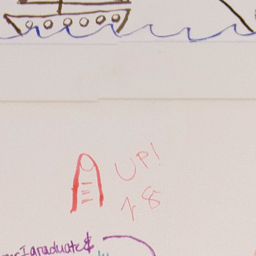 UP!
18
I graduate &